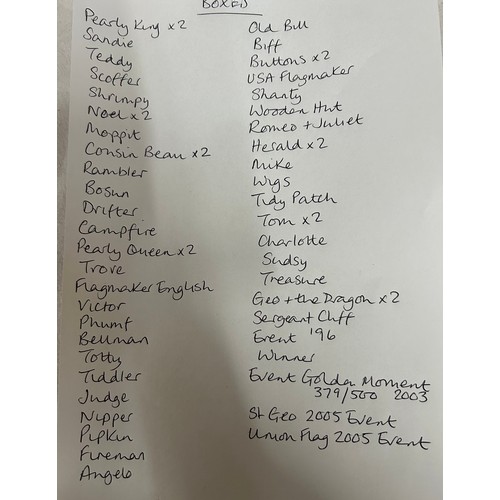 BOXED
Pearly King x2
Sandie
Teddy
Scoffer
Shrimpy
Noel x2
Moppit
Cousin Beau x2
Rambler
Bosun
Drifter
Campfire
Pearly Queen x2
Trove
Flagmaker English
Victor
Phumf
Bellman
Totty
Tiddler
Judge
Nipper
Pipkin
Fireman
Angelo
Old Bill
Biff
Buttons x2
USA Flagmaker
Shanty
Wooden Hut
Romeo + Juliet
Herald x2
Mike
Wigs
Tidy Patch
Tom x2
Charlotte
Sudsy
Treasure
Geo + the Dragon x2
Sergeant Cliff
Event '96
Winner
Event Golden Moment
379/500 2003
St Geo 2005 Event
Union Flag 2005 Event